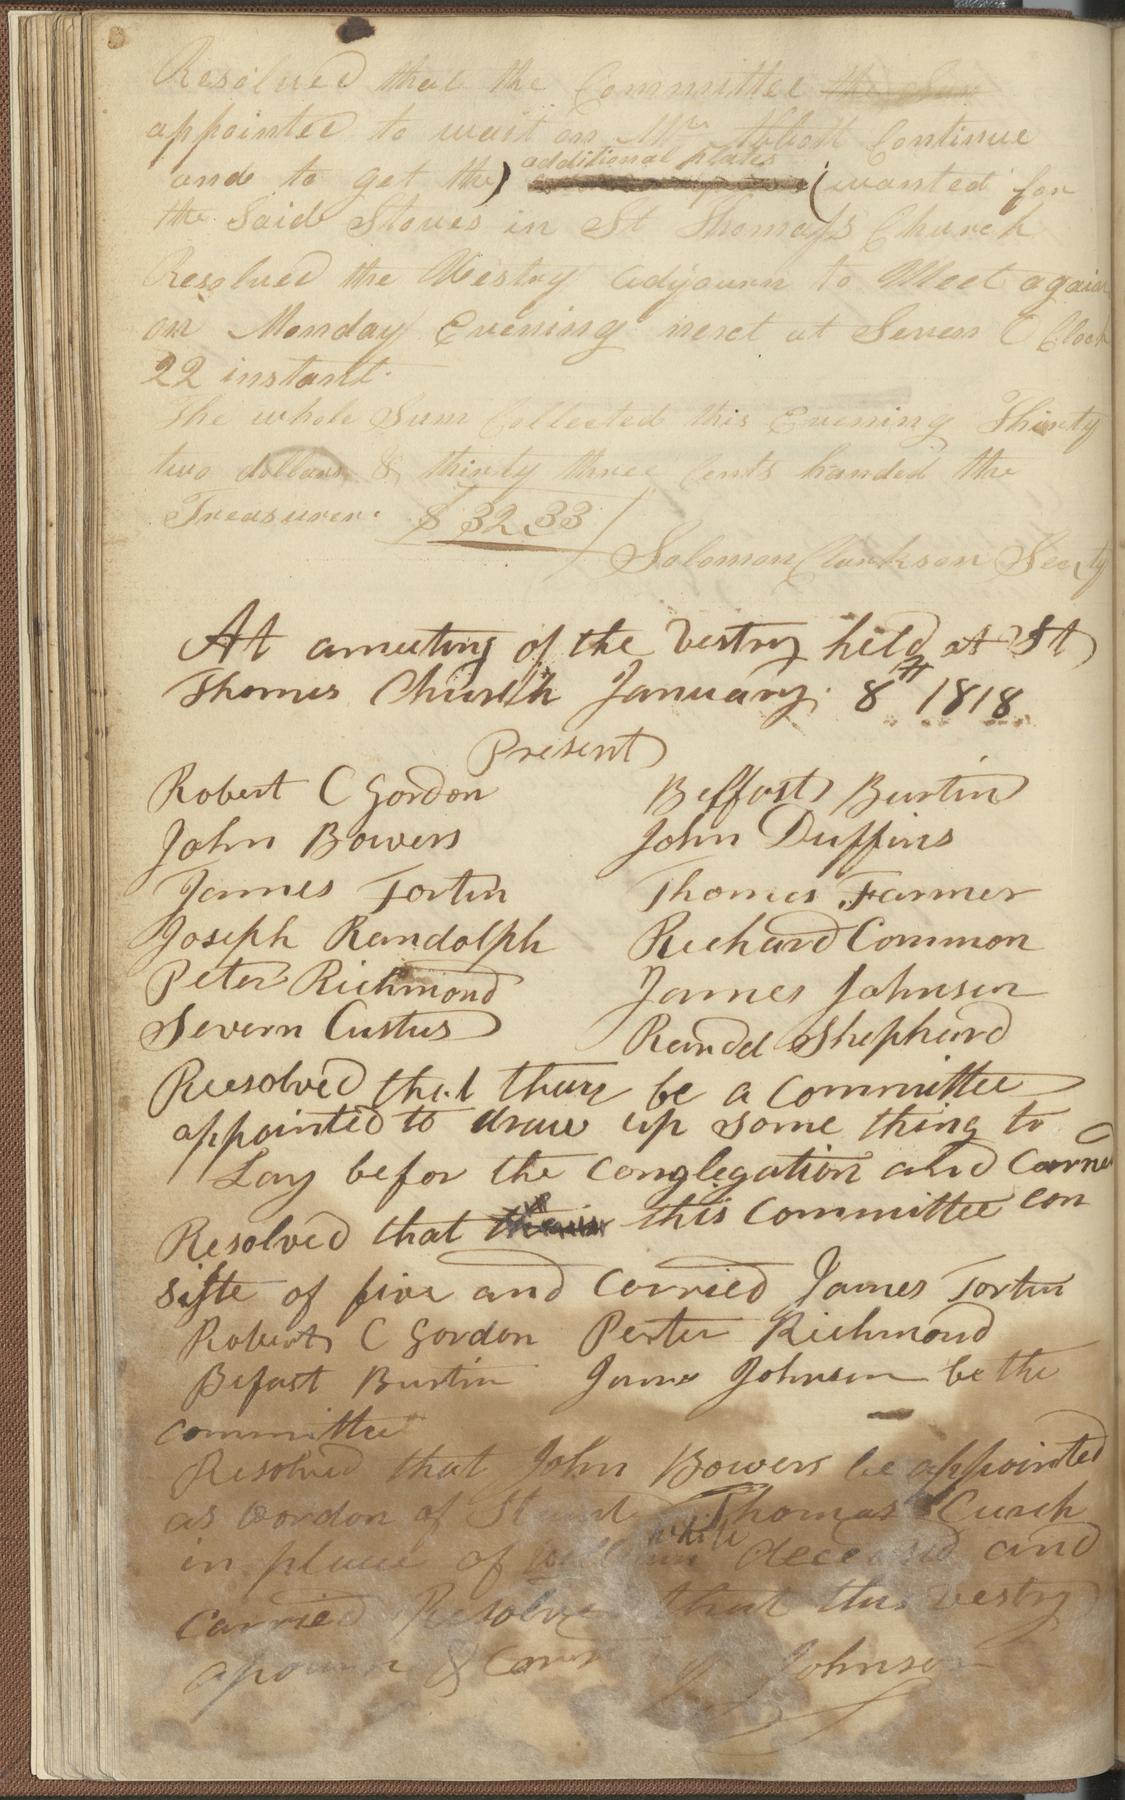 Resolved that the Committee
appointed to wait on Mr Abbott Continue
additional plates
and to get the) (wanted for
the Said Stoves in St Thomas's Church
Resolved the Vestry adjourn to Meet again
on Monday Evening next at Seven O Clock
22 instant.
The whole Sum Collected this Evening Thirty
two dollars & thirty three Cents handed the
Treasurer. $ 32.33/
Solomon Clarkson Secty
At ameeting of the Vestry held at St
Thomes Church January. 8th 1818
Present
Robert C Gordon Beffast Burtin
John Bowers John Duffins
James Fortin Thomas Farmer
Joseph Randolph Richard Common
Peter Richmond James Johnson
Severn Custus Randel Shephard
Reesolved that thare be a Committee
appointed to draw up some thing to
Lay befor the conglegation and Carred
Resolved that this Committee con
siste of five and Corried James Fortin
Robert C Gordon Perter Richmond
Befast Burtin James Johnson be the
committee
Resolved that John Bowers be appointed
as wordon of Thomas Curch
white
in place of William Deceased and
carried Resolve that this vestry
& Johnson